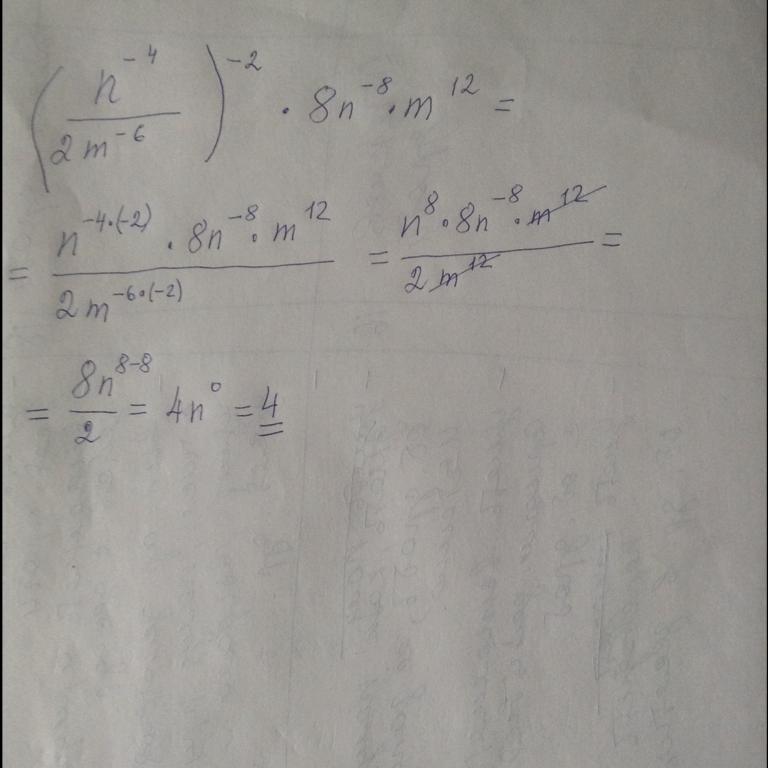 (n⁻⁴ / 2m⁻⁶)⁻² · 8n⁻⁸ · m¹² =
= n⁻⁴·⁽⁻²⁾ · 8n⁻⁸ · m¹² / 2m⁻⁶·⁽⁻²⁾ = n⁸ · 8n⁻⁸ · m¹² / 2m¹² =
= 8n⁸⁻⁸ / 2 = 4n⁰ = 4